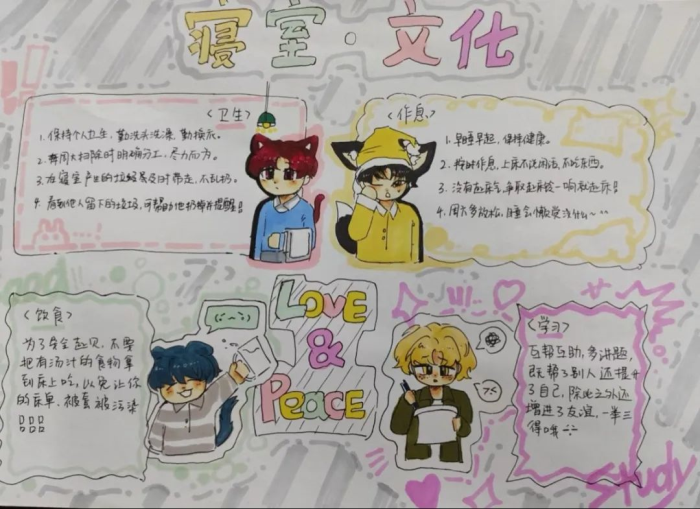 寝室·文化
<卫生>
1. 保持个人卫生，勤洗头洗澡，勤换衣.
2. 每周大扫除时明确分工，尽力而为.
3. 在寝室产生的垃圾要及时带走，不乱扔.
4. 看到他人留下的垃圾，可帮助他扔掉并提醒!!
<作息>
1. 早睡早起，保持健康.
2. 按时作息，上床不说闲话，不吃东西.
3. 没有起床气，争取起床铃一响就起床!!
4. 周六多放松，睡会懒觉没什么~^^
<饮食>
为了安全起见，不要
把有汤汁的食物拿
到床上吃，以免让你
的床单、被套被污染
LOVE
&
PEACE
<学习>
互帮互助，多讲题，
既帮了别人还提升
了自己，除此之外还
增进了友谊，一举三
得哦
Study